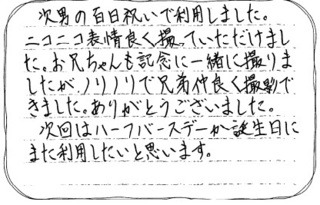 次男の百日祝いで利用しました。
ニコニコ表情良く撮っていただけまし
た。お兄ちゃんも記念に一緒に撮りま
したがノリノリで兄弟仲良く撮影で
きました。ありがとうございました。
次回はハーフバースデーか誕生日に
また利用したいと思います。